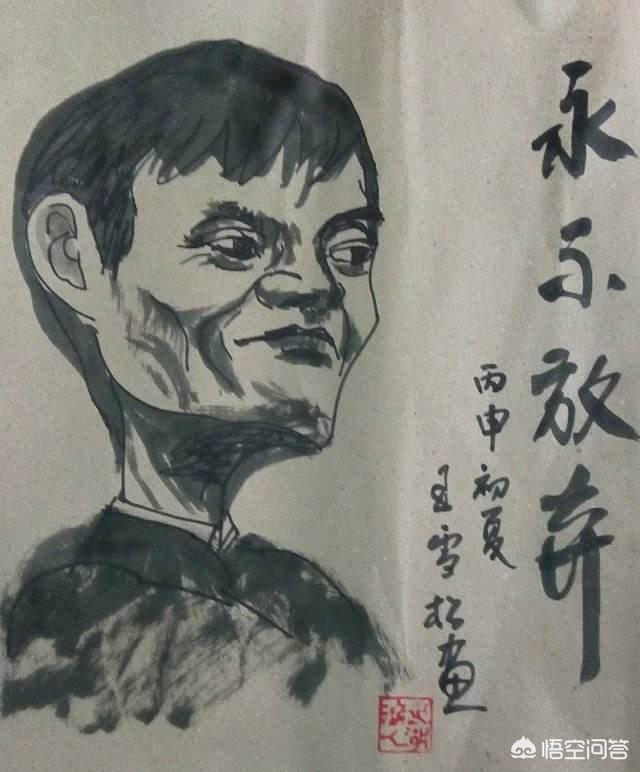 永不放弃
丙申初夏
王雪松画
悟空问答